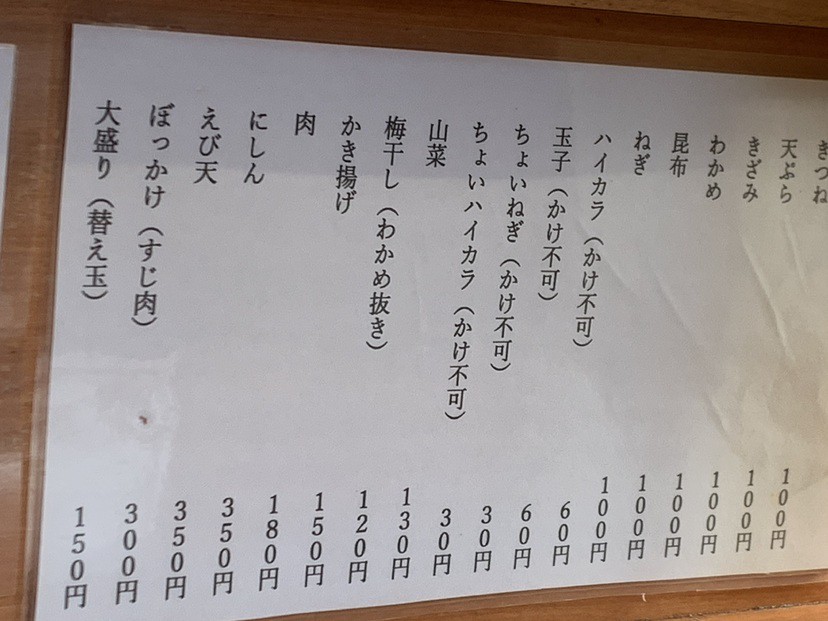 きつね 100円
天ぷら 100円
きざみ 100円
わかめ 100円
昆布 100円
ねぎ 100円
ハイカラ（かけ不可） 60円
玉子（かけ不可） 60円
ちょいねぎ（かけ不可） 30円
ちょいハイカラ（かけ不可） 30円
山菜 130円
梅干し（わかめ抜き） 120円
かき揚げ 150円
肉 180円
にしん 350円
えび天 350円
ぼっかけ（すじ肉） 300円
大盛り（替え玉） 150円